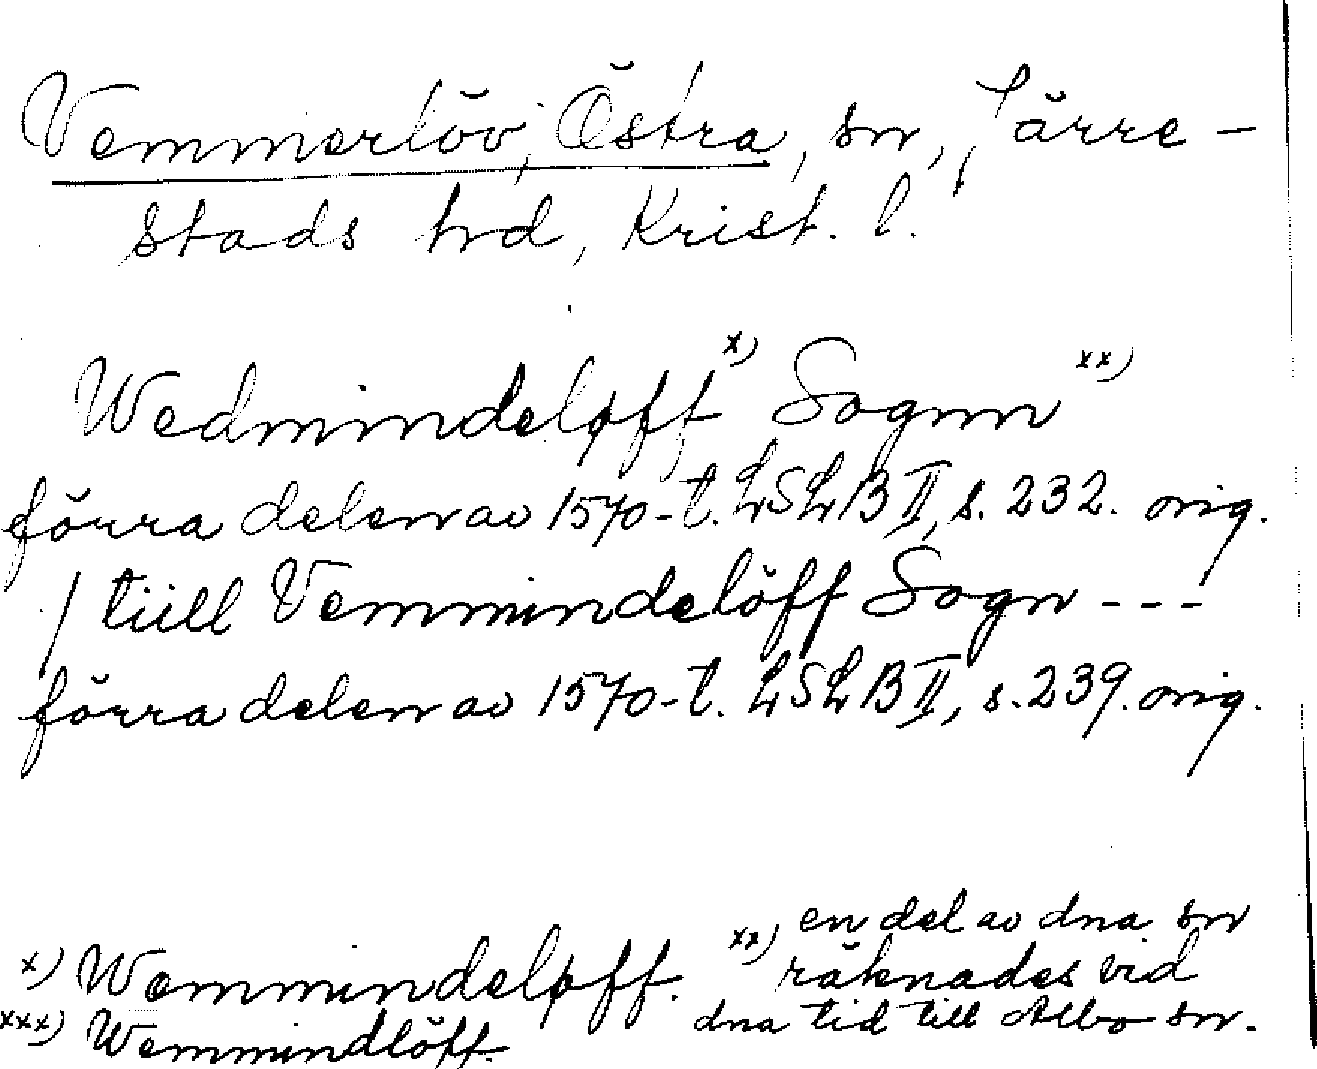 Vemmerlöv, Östra, sn, Järre-
stads hd, Krist. l.
Wedmindeløff x) Sognn xx)
förra delen av 1570-t. LSLB II, s. 232. orig.
/ tiill Vemmindelöff Sogn ---
förra delen av 1570-t. LSLB II, s. 239. orig.
x) Wemmindeløff. xx) en del av dna sn
räknades vid
dna tid till Albo sn.
xxx) Wemmindlöff.